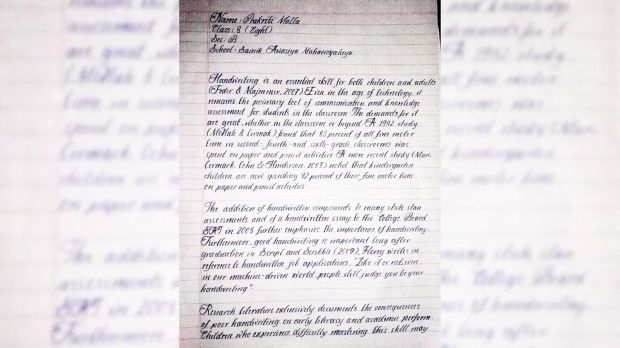 Name: Prakriti Malla
Class: 8 (Eight)
Sec: B
School: Sainik Awasiya Mahavidyalaya
Handwriting is an essential skill for both children and adults
(Feder & Majnemer, 2007) Even in the age of technology, it
remains the primary tool of communication and knowledge
assessment for students in the classroom The demands for it
are great, whether in the classroom or beyond A 1992 study
(McHale & Cermak) found that 85 percent of all fine motor
time in second- fourth- and sixth-grade classrooms was
spent on paper and pencil activities A more recent study (Marr,
Cermark, Cohn & Henderson, 2003) noted that kindergarten
children are now spending 42 percent of their fine motor time
on paper and pencil activities.
The addition of handwritten components to many state
assessments and of a handwritten essay to the College Board
SAT in 2005 further emphasize the importance of handwriting
Furthermore, good handwriting is important long after
graduation in Script and Scribble (2009), Florey writes in
reference to handwritten job applications, "Like it or not, even
in our machine-driven world, people still judge you by your
handwriting".
Research literature extensively documents the consequences
of poor handwriting on early literacy and academic perform
Children who experience difficulty mastering this skill may